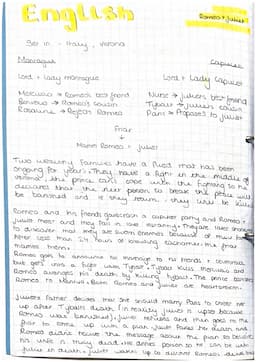 English
Romeo + Juliet
Set in - Italy, Verona
Montague
Capulet
Lord + Lady montague
Lord + Lady Capulet
Mercutio → Romeo's best friend
Nurse → Juliet's best friend
Benvolio → Romeo's cousin
Tybalt → Juliet's cousin
Rosaline → Rejects Romeo
Paris → Proposes to Juliet
Friar
↓
Marries Romeo + Juliet
Two wealthy families have a feud that has been
ongoing for years. They have a fight in the middle of
Verona, the prince can't cope with the fighting so he
declares that the next person to break the peace will
be banished and if they return, they will be killed
Romeo and his friends gatecrash a capulet party and Romeo +
Juliet meet and they fall in love instantly. They are
to discover that they are sworn enemies because of their families
After less than 24 hours of knowing eachother, the friar
marries them.
Romeo goes to announce his marriage to his friends +
but gets into a fight with Tybalt. Tybalt kills Mercutio and
Romeo avenges his death by killing Tybalt. The prince
Romeo to Mantua. Both Romeo and Juliet are heartbroken.
Juliet's father decides that she should marry Paris to cheer her
up after Tybalt's death. (in reality Juliet is upset because
Romeo was banished). Juliet refuses and then goes to the
friar to come up with a plan. Juliet fakes her death and
Romeo didn't receive the message about the plan so believes
his wife is they dead. He drinks poison so he
Juliet in death. Juliet wakes up to discover Romeo's dead